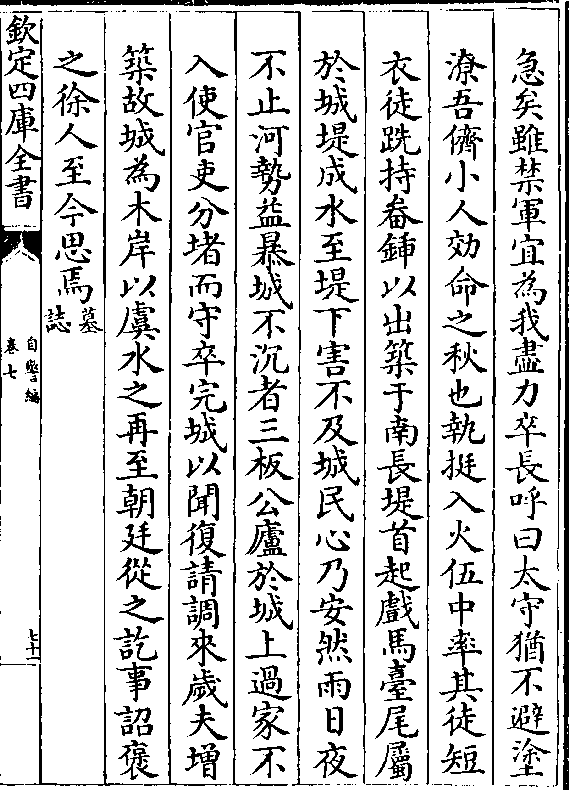 急矣雖禁軍宜為我盡力卒長呼曰太守猶不避塗
潦吾儕小人効命之秋也執挺入火伍中率其徒短
衣徒跣持畚鍤以出築于南長堤首起戲馬臺尾屬
於城堤成水至堤下害不及城民心乃安然雨日夜
不止河勢益暴城不沉者三板公廬於城上過家不
入使官吏分堵而守卒完城以聞復請調來歲夫增
築故城為木岸以虞水之再至朝廷從之訖事詔褒
之徐人至今思焉墓誌
欽定四庫全書
自警編
卷七
七十一